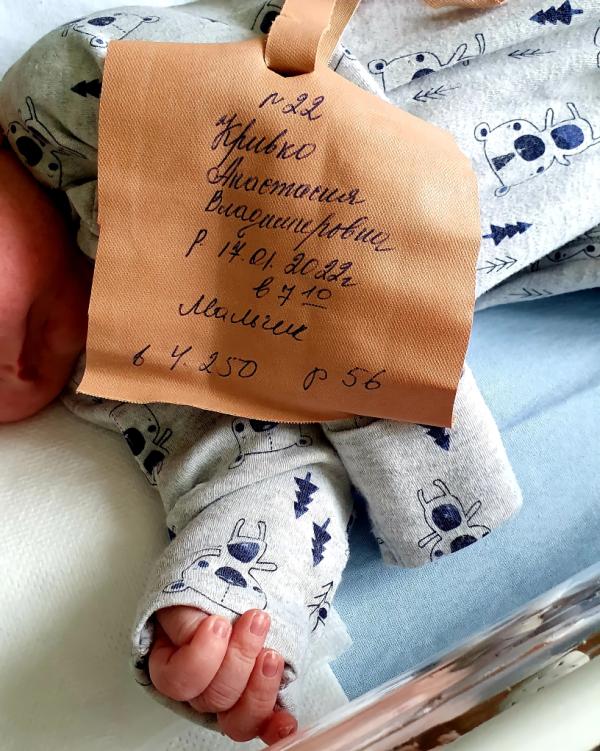 н 22
Кривко
Анастасия
Владимировна
р 17.01.2022г
в 7 10
Мальчик
в 4.250 р 56